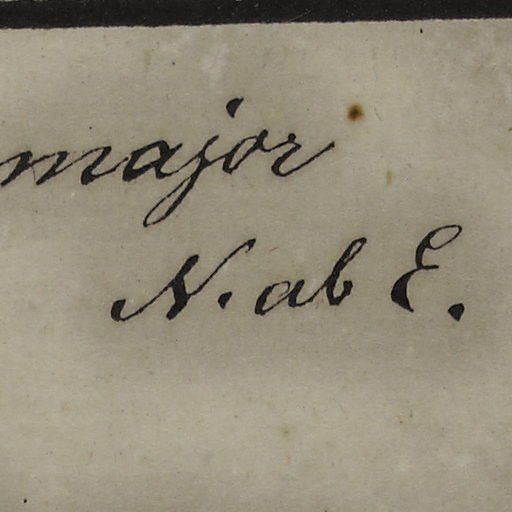 major
N. ab E.